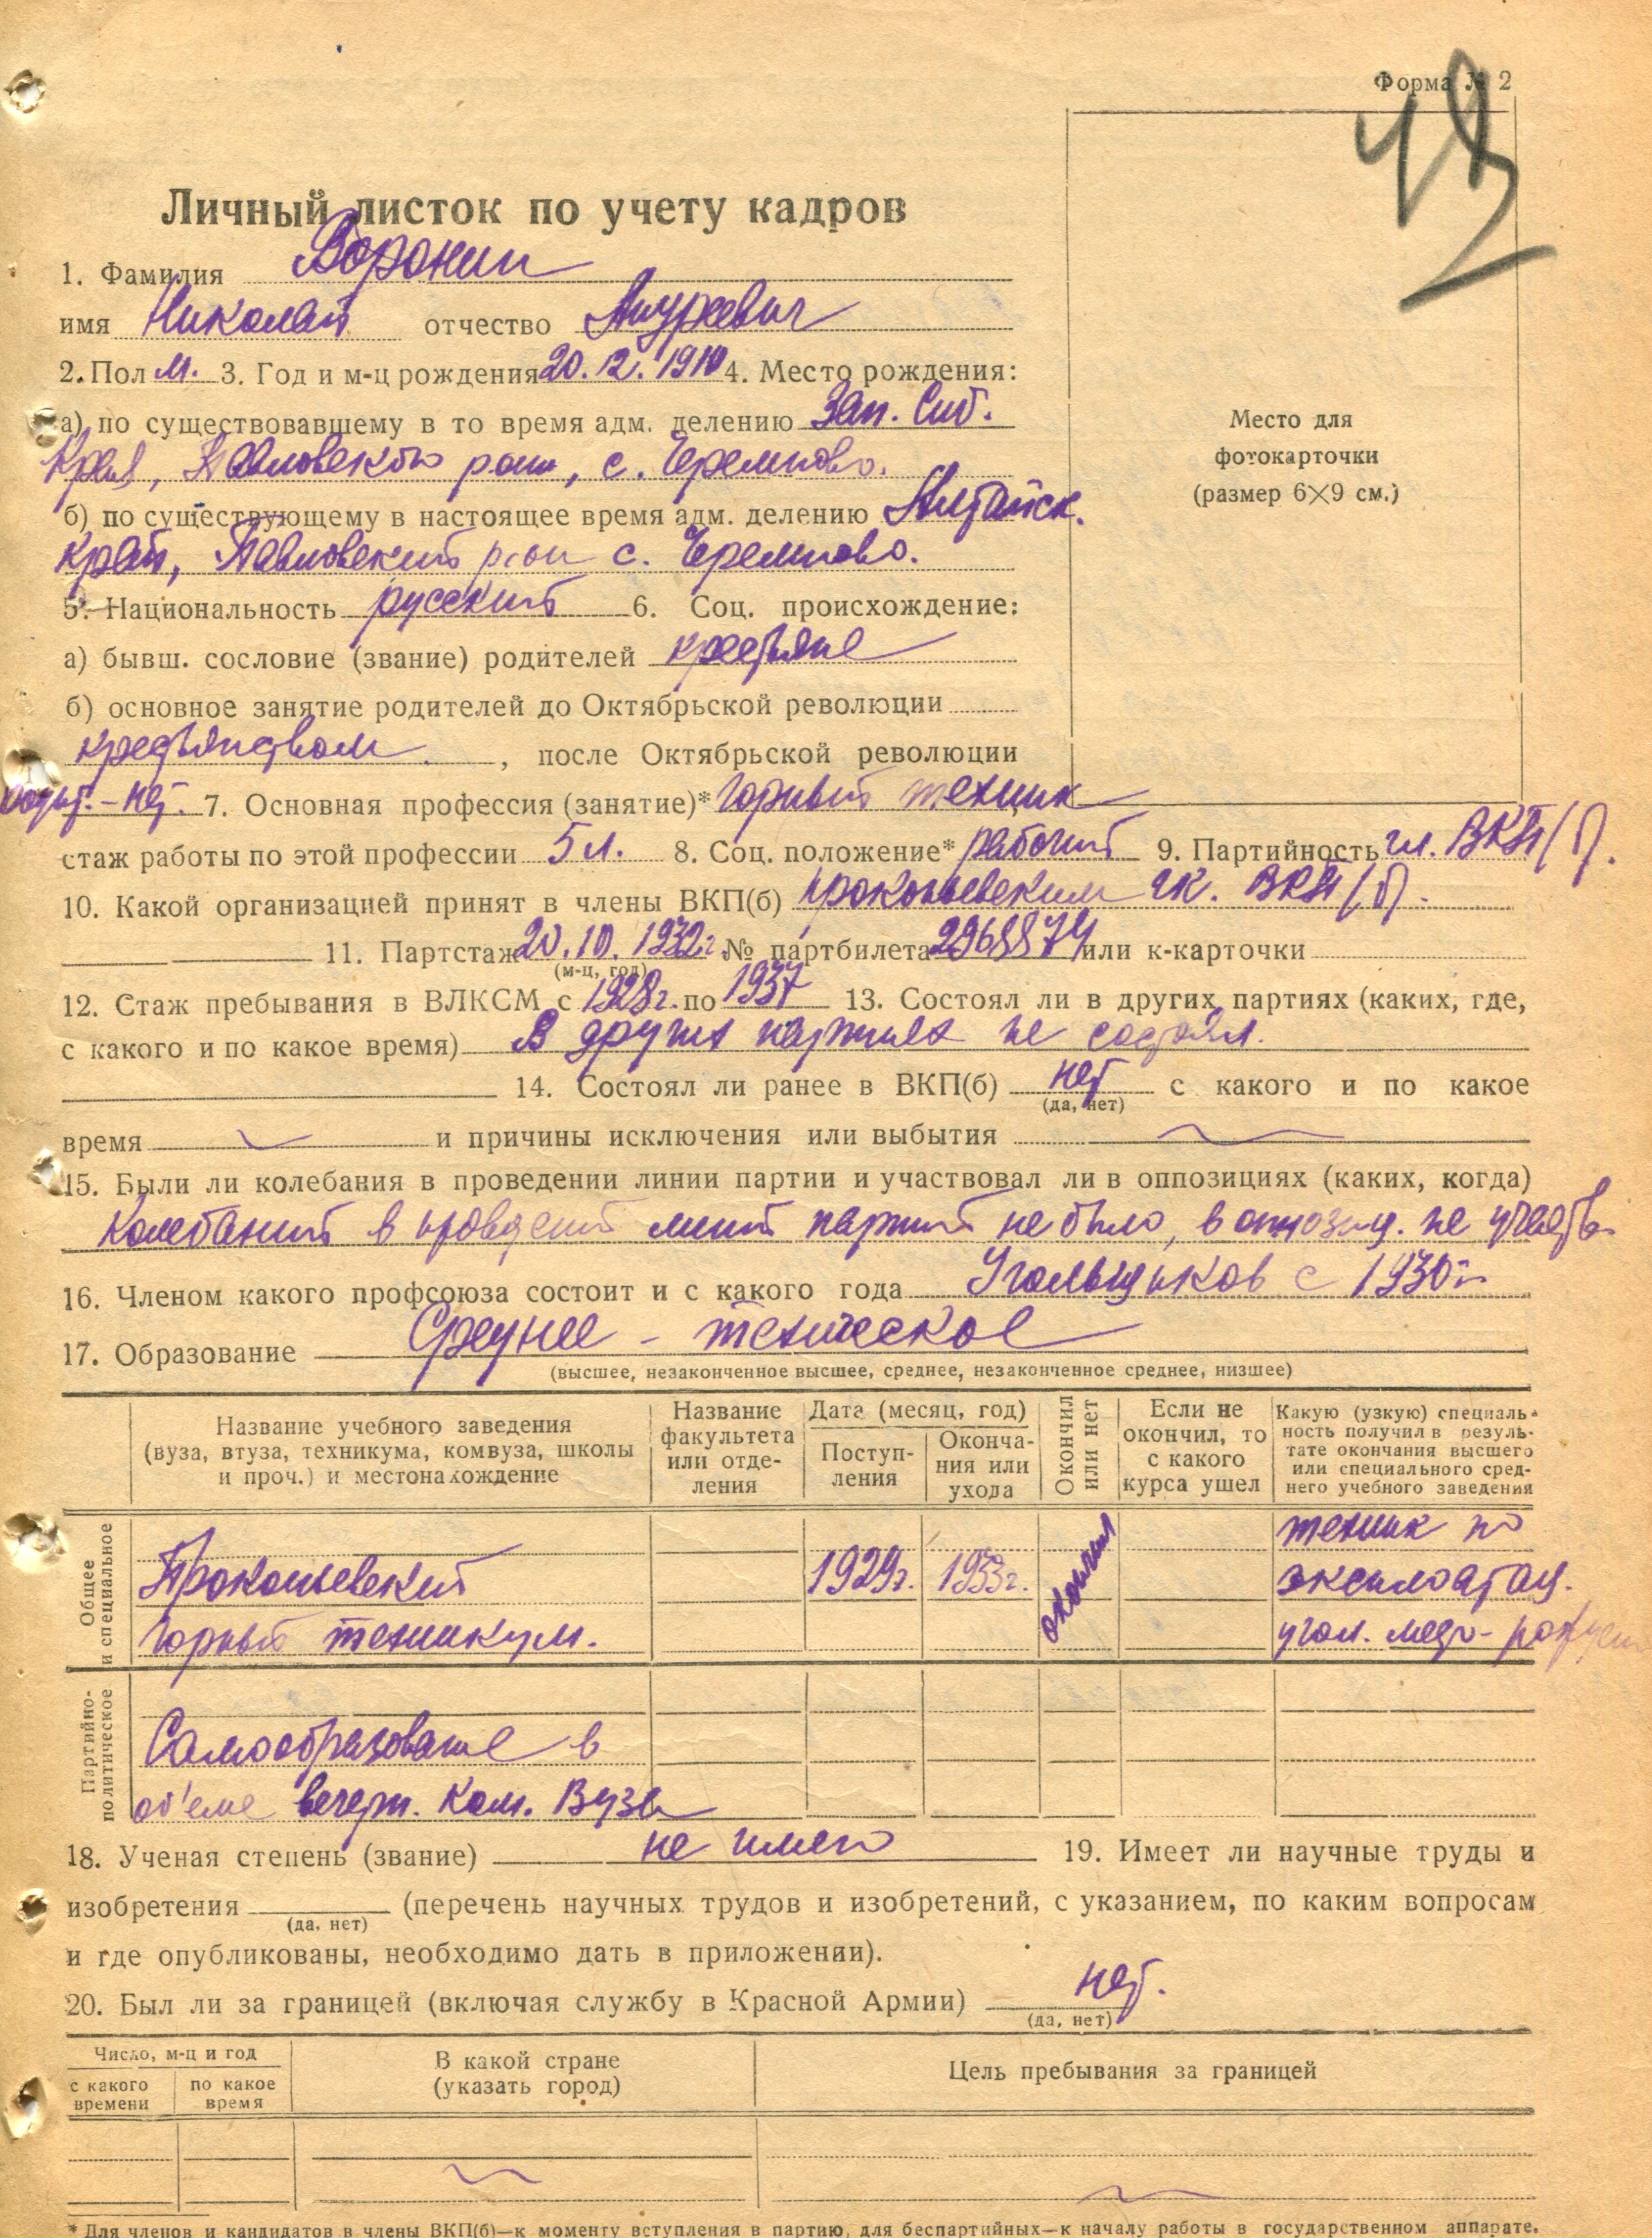 Форма № 2
Личный листок по учету кадров
1. Фамилия Воронин
имя Николай отчество
2. Пол м. 3. Год и м-ц рождения 20.12.1910 4. Место рождения:
а) по существовавшему в то время адм. делению Зап. Сиб.
края, Павловского рай, с. Черемново.
б) по существующему в настоящее время адм. делению Алтайск.
край, Павловский с. Черемново.
5. Национальность русский 6. Соц. происхождение:
а) бывш. сословие (звание) родителей крестьяне
б) основное занятие родителей до Октябрьской революции
крестьянством. , после Октябрьской революции
нет. 7. Основная профессия (занятие)* горный техник
стаж работы по этой профессии 5 л. 8. Соц. положение* рабочий 9. Партийность чл. ВКП(б).
10. Какой организацией принят в члены ВКП(б) Прокопьевским гк. ВКП(б).
11. Партстаж 20.10.1932г. № партбилета 2968874 или к-карточки
(м-ц, год)
12. Стаж пребывания в ВЛКСМ с 1928г. по 1937 13. Состоял ли в других партиях (каких, где,
с какого и по какое время) В других партиях не состоял.
14. Состоял ли ранее в ВКП(б) нет с какого и по какое
(да, нет)
время и причины исключения или выбытия
15. Были ли колебания в проведении линии партии и участвовал ли в оппозициях (каких, когда)
Колебаний в линий партий не было, в оппозиц. не участв.
16. Членом какого профсоюза состоит и с какого года Угольщиков с 1930г.
17. Образование Среднее - техническое
(высшее, незаконченное высшее, среднее, незаконченное среднее, низшее)
Название учебного заведения (вуза, втуза, техникума, комвуза, школы и проч.) и местонахождение
Название факультета или отделения
Дата (месяц, год)
Поступления
Окончания или ухода
Окончил или нет
Если не окончил, то с какого курса ушел
Какую (узкую) специальность получил в результате окончания высшего или специального среднего учебного заведения
Общее и специальное
Прокопьевский
горный техникум.
1929г. 1933г. окончил
техник по
эксплоатац.
угол. место-рожден
Партийно-политическое
Самообразование в
об'еме вечерн. Ком. Вуза
18. Ученая степень (звание) не имею 19. Имеет ли научные труды и
изобретения (перечень научных трудов и изобретений, с указанием, по каким вопросам
(да, нет)
и где опубликованы, необходимо дать в приложении).
20. Был ли за границей (включая службу в Красной Армии) нет.
(да, нет)
Число, м-ц и год
с какого времени
по какое время
В какой стране (указать город)
Цель пребывания за границей
* Для членов и кандидатов в члены ВКП(б)—к моменту вступления в партию, для беспартийных—к началу работы в государственном аппарате.
Место для
фотокарточки
(размер 6×9 см.)